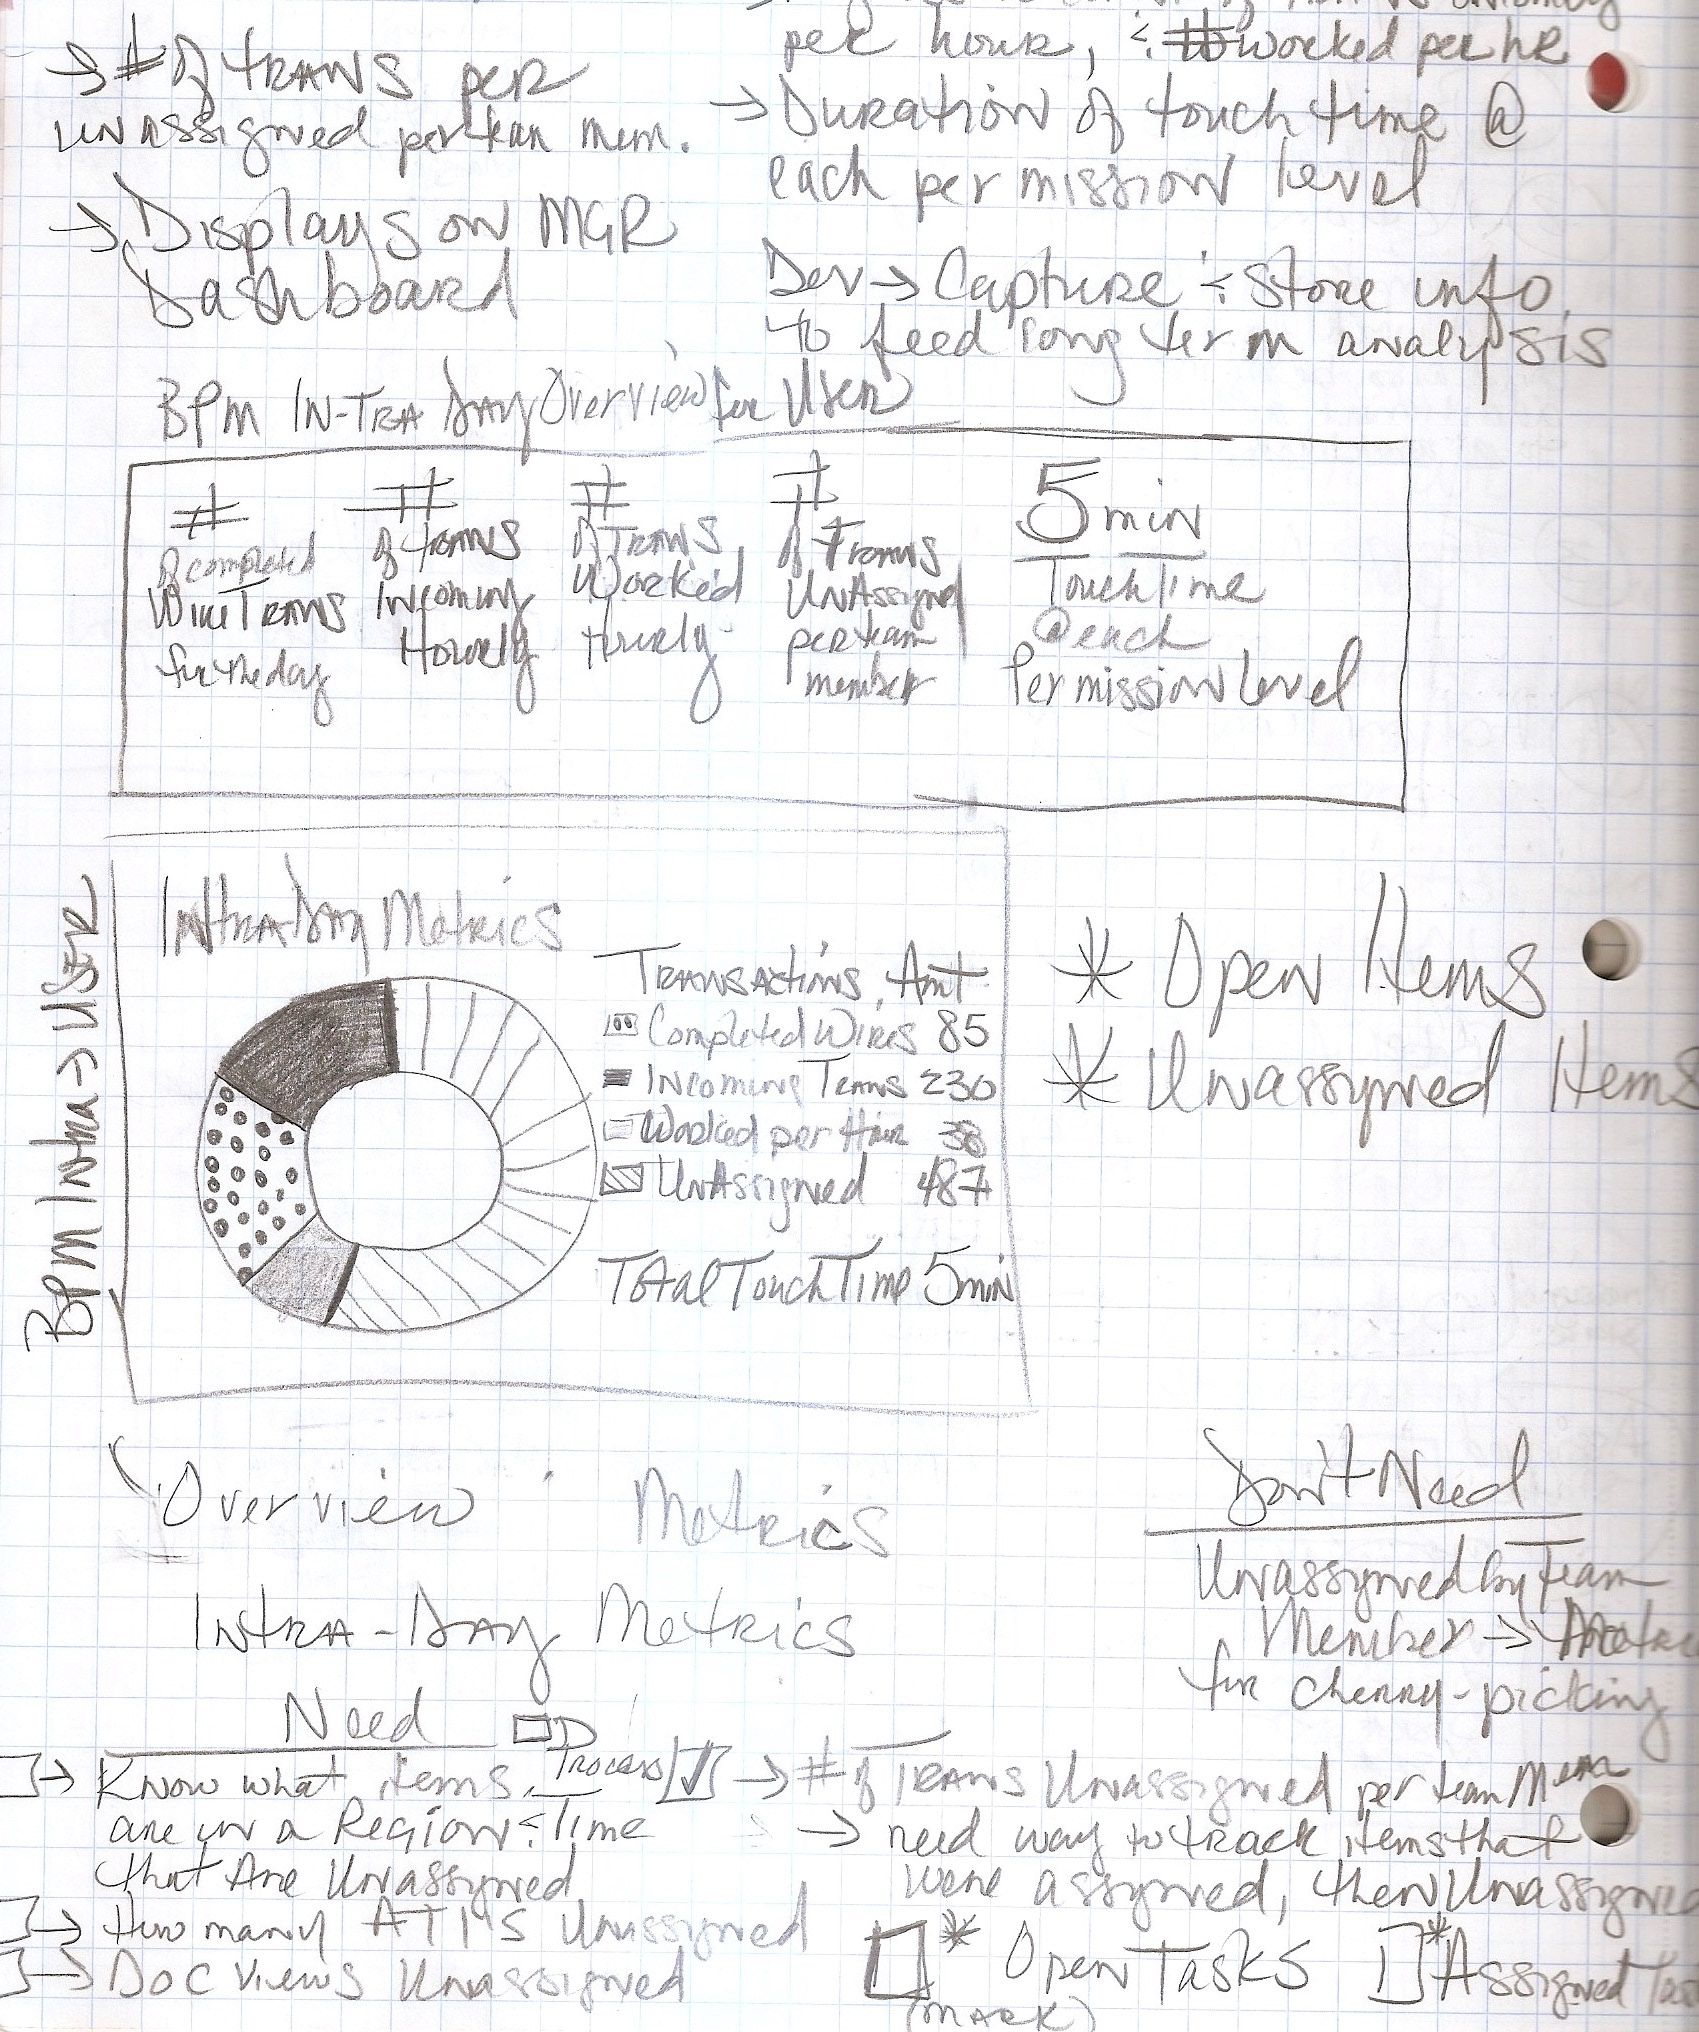 → # of trans per
unassigned per team mem.
→ Displays on MGR
Dashboard
per hour, & # worked per hr
→ Duration of touch time @
each permission level
Dev → Capture & Store info
to feed long term analysis
BPM IN-TRA DAY Overview for User
#
of completed
Wire Trans
for the day
#
of trans
Incoming
Hourly
#
of Trans
Worked
Hourly
#
of Trans
UnAssigned
per team
member
5 min
Touch Time
@ each
Permission Level
BPM Intra → USER
Intra Day Metrics
Transactions, Amt
Completed Wires 85
Incoming Trans 230
Worked per Hour 38
UnAssigned 487
Total Touch Time 5 min
* Open Items
* Unassigned Items
Overview Metrics
Intra-Day Metrics
Don't Need
Unassigned by Team
Member →
for cherry-picking
Need
→ Know what items, Process
are in a Region & Time
that Are Unassigned
→ How many ATI'S Unassigned
→ Doc Views Unassigned
→ # of Trans Unassigned per team Mem
→ need way to track items that
were assigned, then Unassigned
* Open Tasks
(MARK)
* Assigned Tas